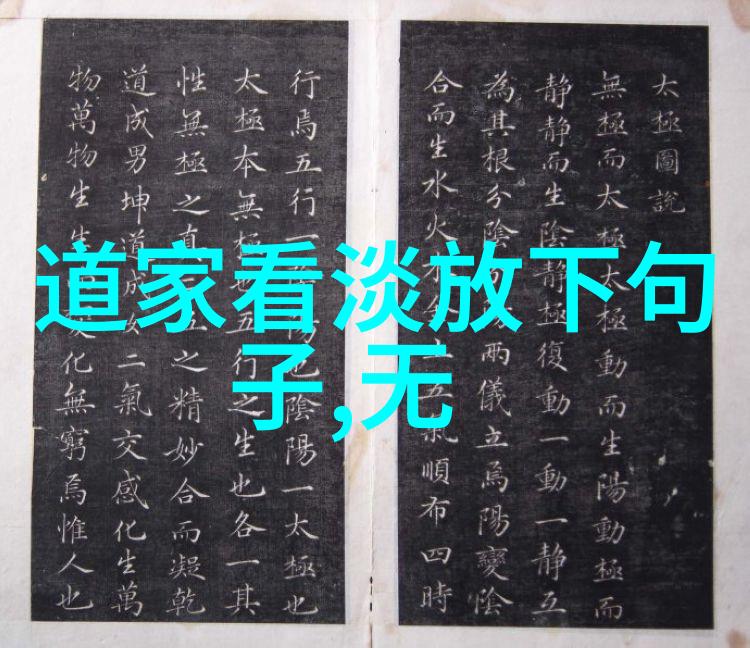 道家看淡放下句
子,无
太極圖說
無極而太極太極動而生陽動極而
静静而生陰静極復動一動一静互
為其根分陰陽兩儀立焉陽變陰
合而生水火木金土五氣順布四時
行焉五行一陰陽也陰陽一太極也
太極本無極也五行之生也各一其
性無極之真五之精妙合而凝乾
道成男坤道成女二氣交感化生萬
物萬物生生變化無窮焉惟人也